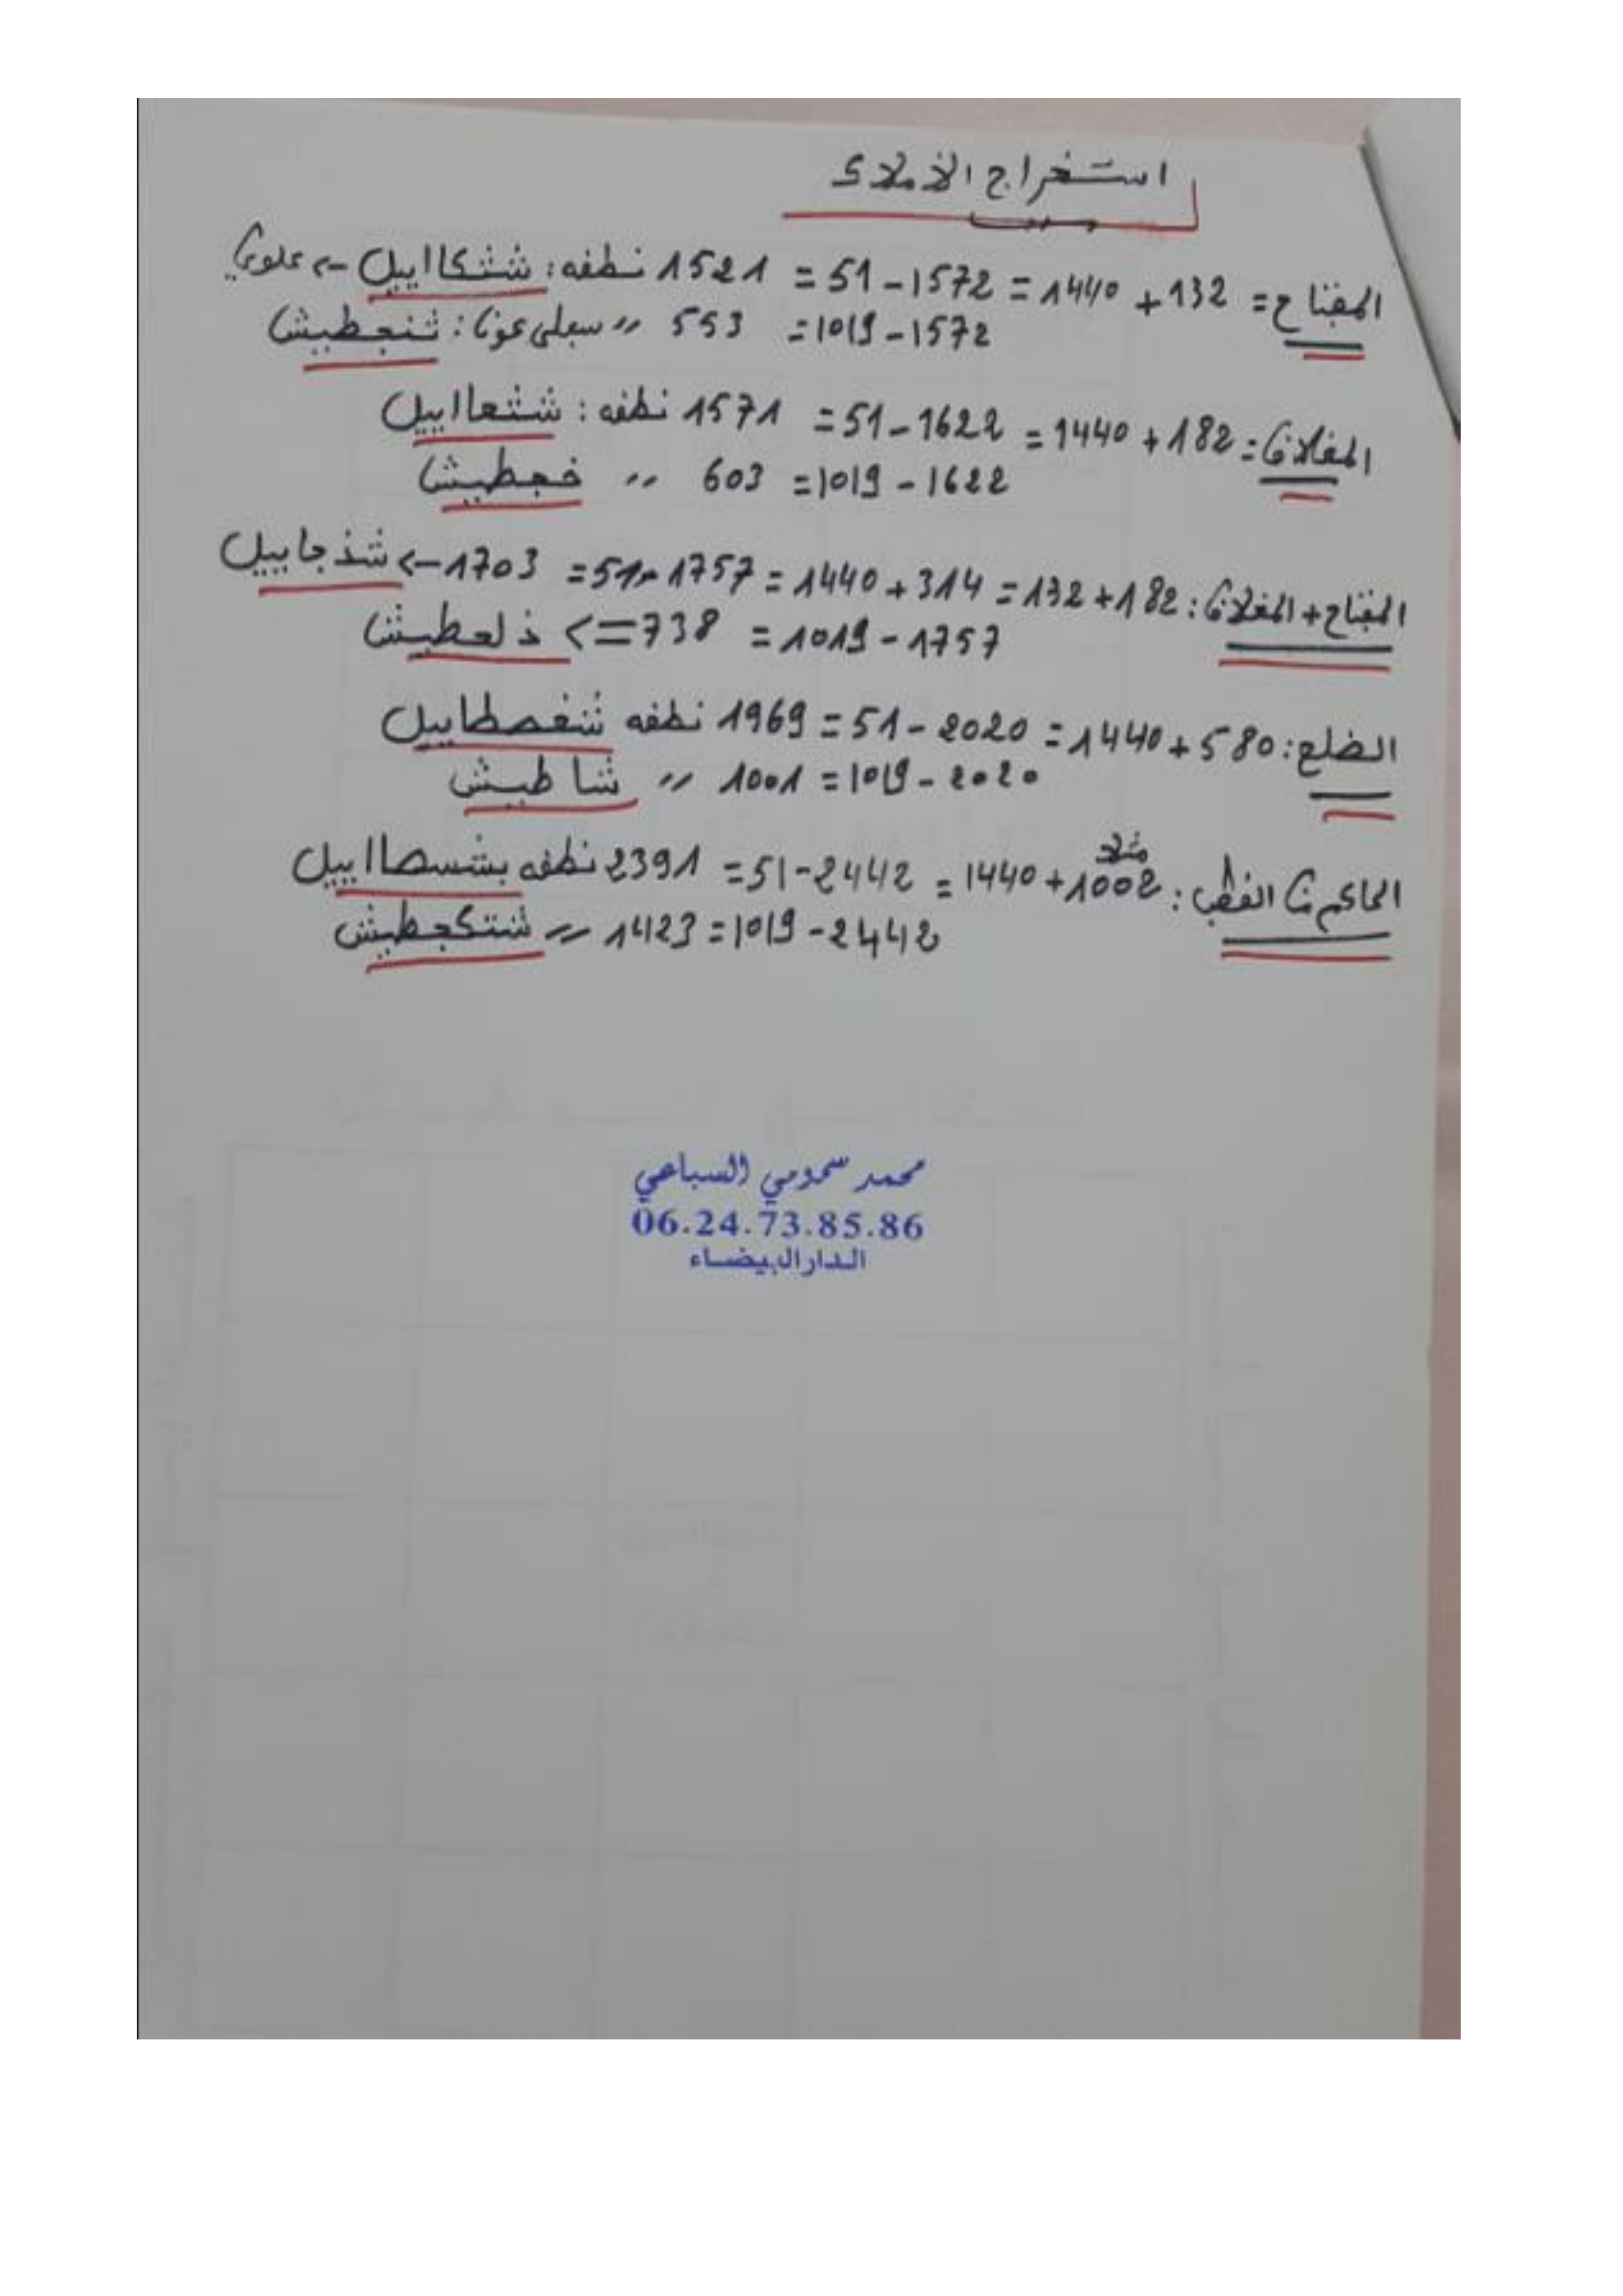 استخراج الأملاك
المفتاح = 132 + 1440 = 1572 - 51 = 1521 نطقه : شثكااييل -> علوي
1572 - 1019 = 553 〃 سفلي عونا : ثنجطيش
المغلاق = 182 + 1440 = 1622 - 51 = 1571 نطقه : شثعااييل
1622 - 1019 = 603 〃 خجطيش
المفتاح + المغلاق : 182 + 132 = 314 + 1440 = 1757 - 51 = 1703 -> شذجاييل
1757 - 1019 = 738 => ذلحطيش
الضلع : 580 + 1440 = 2020 - 51 = 1969 نطقه شغصطاييل
2020 - 1019 = 1001 〃 شاطيش
مثلا
القطب : 1002 + 1440 = 2442 - 51 = 2391 نطقه بشسصااييل
2442 - 1019 = 1423 〃 شتكجطيش
محمد سحومي السباعي
06.24.73.85.86
الدار البيضاء